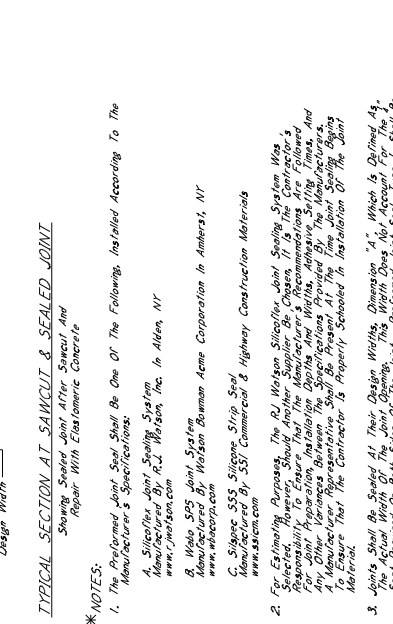 Design Width
TYPICAL SECTION AT SAWCUT & SEALED JOINT
Showing Sealed Joint After Sawcut And
Repair With Elastomeric Concrete
* NOTES:
1. The Preformed Joint Seal Shall Be One Of The Following, Installed According To The
Manufacturer's Specifications:
A. Silicoflex Joint Sealing System
Manufactured By R.J. Watson, Inc. In Alden, NY
www.rjwatson.com
B. Wabo SPS Joint System
Manufactured By Watson Bowman Acme Corporation In Amherst, NY
www.wbacorp.com
C. Silspec SSS Silicone Strip Seal
Manufactured By SSI Commercial & Highway Construction Materials
www.ssicm.com
2. For Estimating Purposes, The RJ Watson Silicoflex Joint Sealing System Was
Selected. However, Should Another Supplier Be Chosen, It Is The Contractor's
Responsibility To Ensure That The Manufacturer's Recommendations Are Followed
For Joint Preparation, Installation Depths And Widths, Adhesive Setting Times, And
Any Other Variances Between The Specifications Provided By The Manufacturers.
A Manufacturer Representative Shall Be Present At The Time Joint Sealing Begins
To Ensure That The Contractor Is Properly Schooled In Installation Of The Joint
Material.
3. Joints Shall Be Sealed At Their Design Widths, Dimension "A", Which Is Defined As
The Actual Width Of The Joint Opening. This Width Does Not Account For The